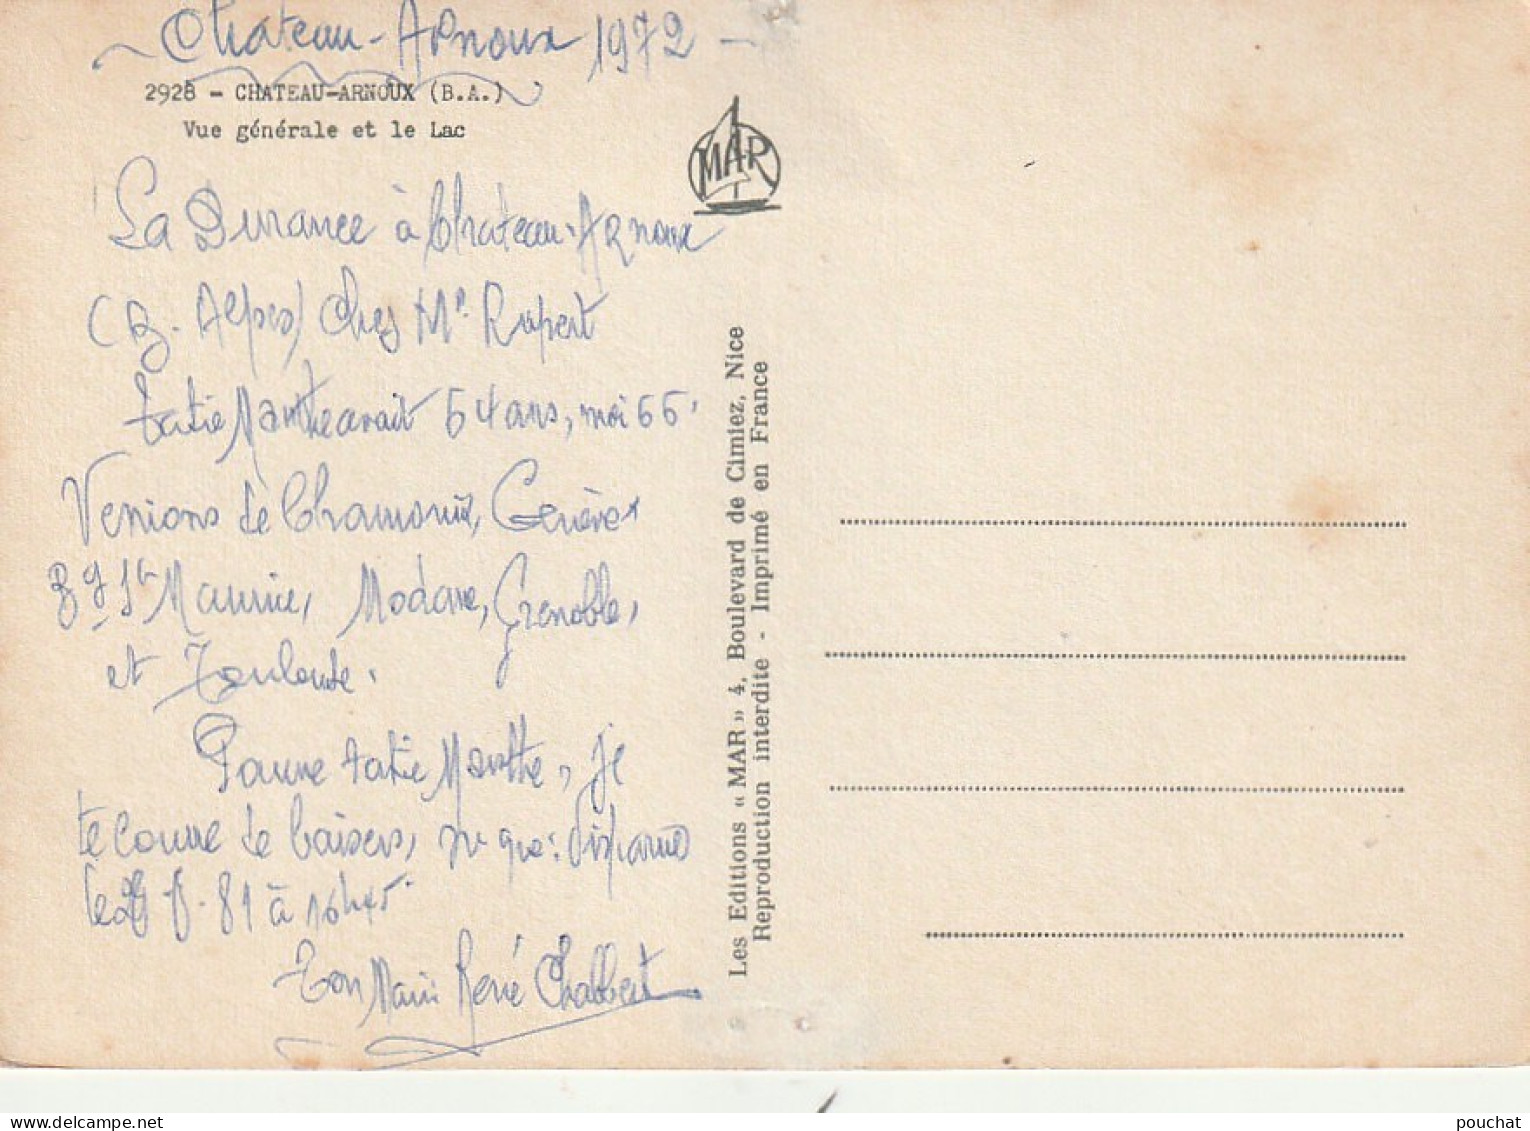 Chateau-Arnoux 1972
2928 - CHATEAU-ARNOUX (B.A.)
Vue générale et le Lac
MAR
La Durance à Chateau-Arnoux
(B. Alpes) chez Mr. Rupert
tatie Marthe avait 54 ans, moi 55.
Venions de Chamonix, Genève
Bg St Maurice, Modane, Grenoble,
et Toulouse.
Pauvre tatie Marthe, je
te couvre de baisers,
le 81 à 16h45.
Ton Mari René Chabbert
Les Editions « MAR » 4, Boulevard de Cimiez, Nice
Reproduction interdite - Imprimé en France
pouchat